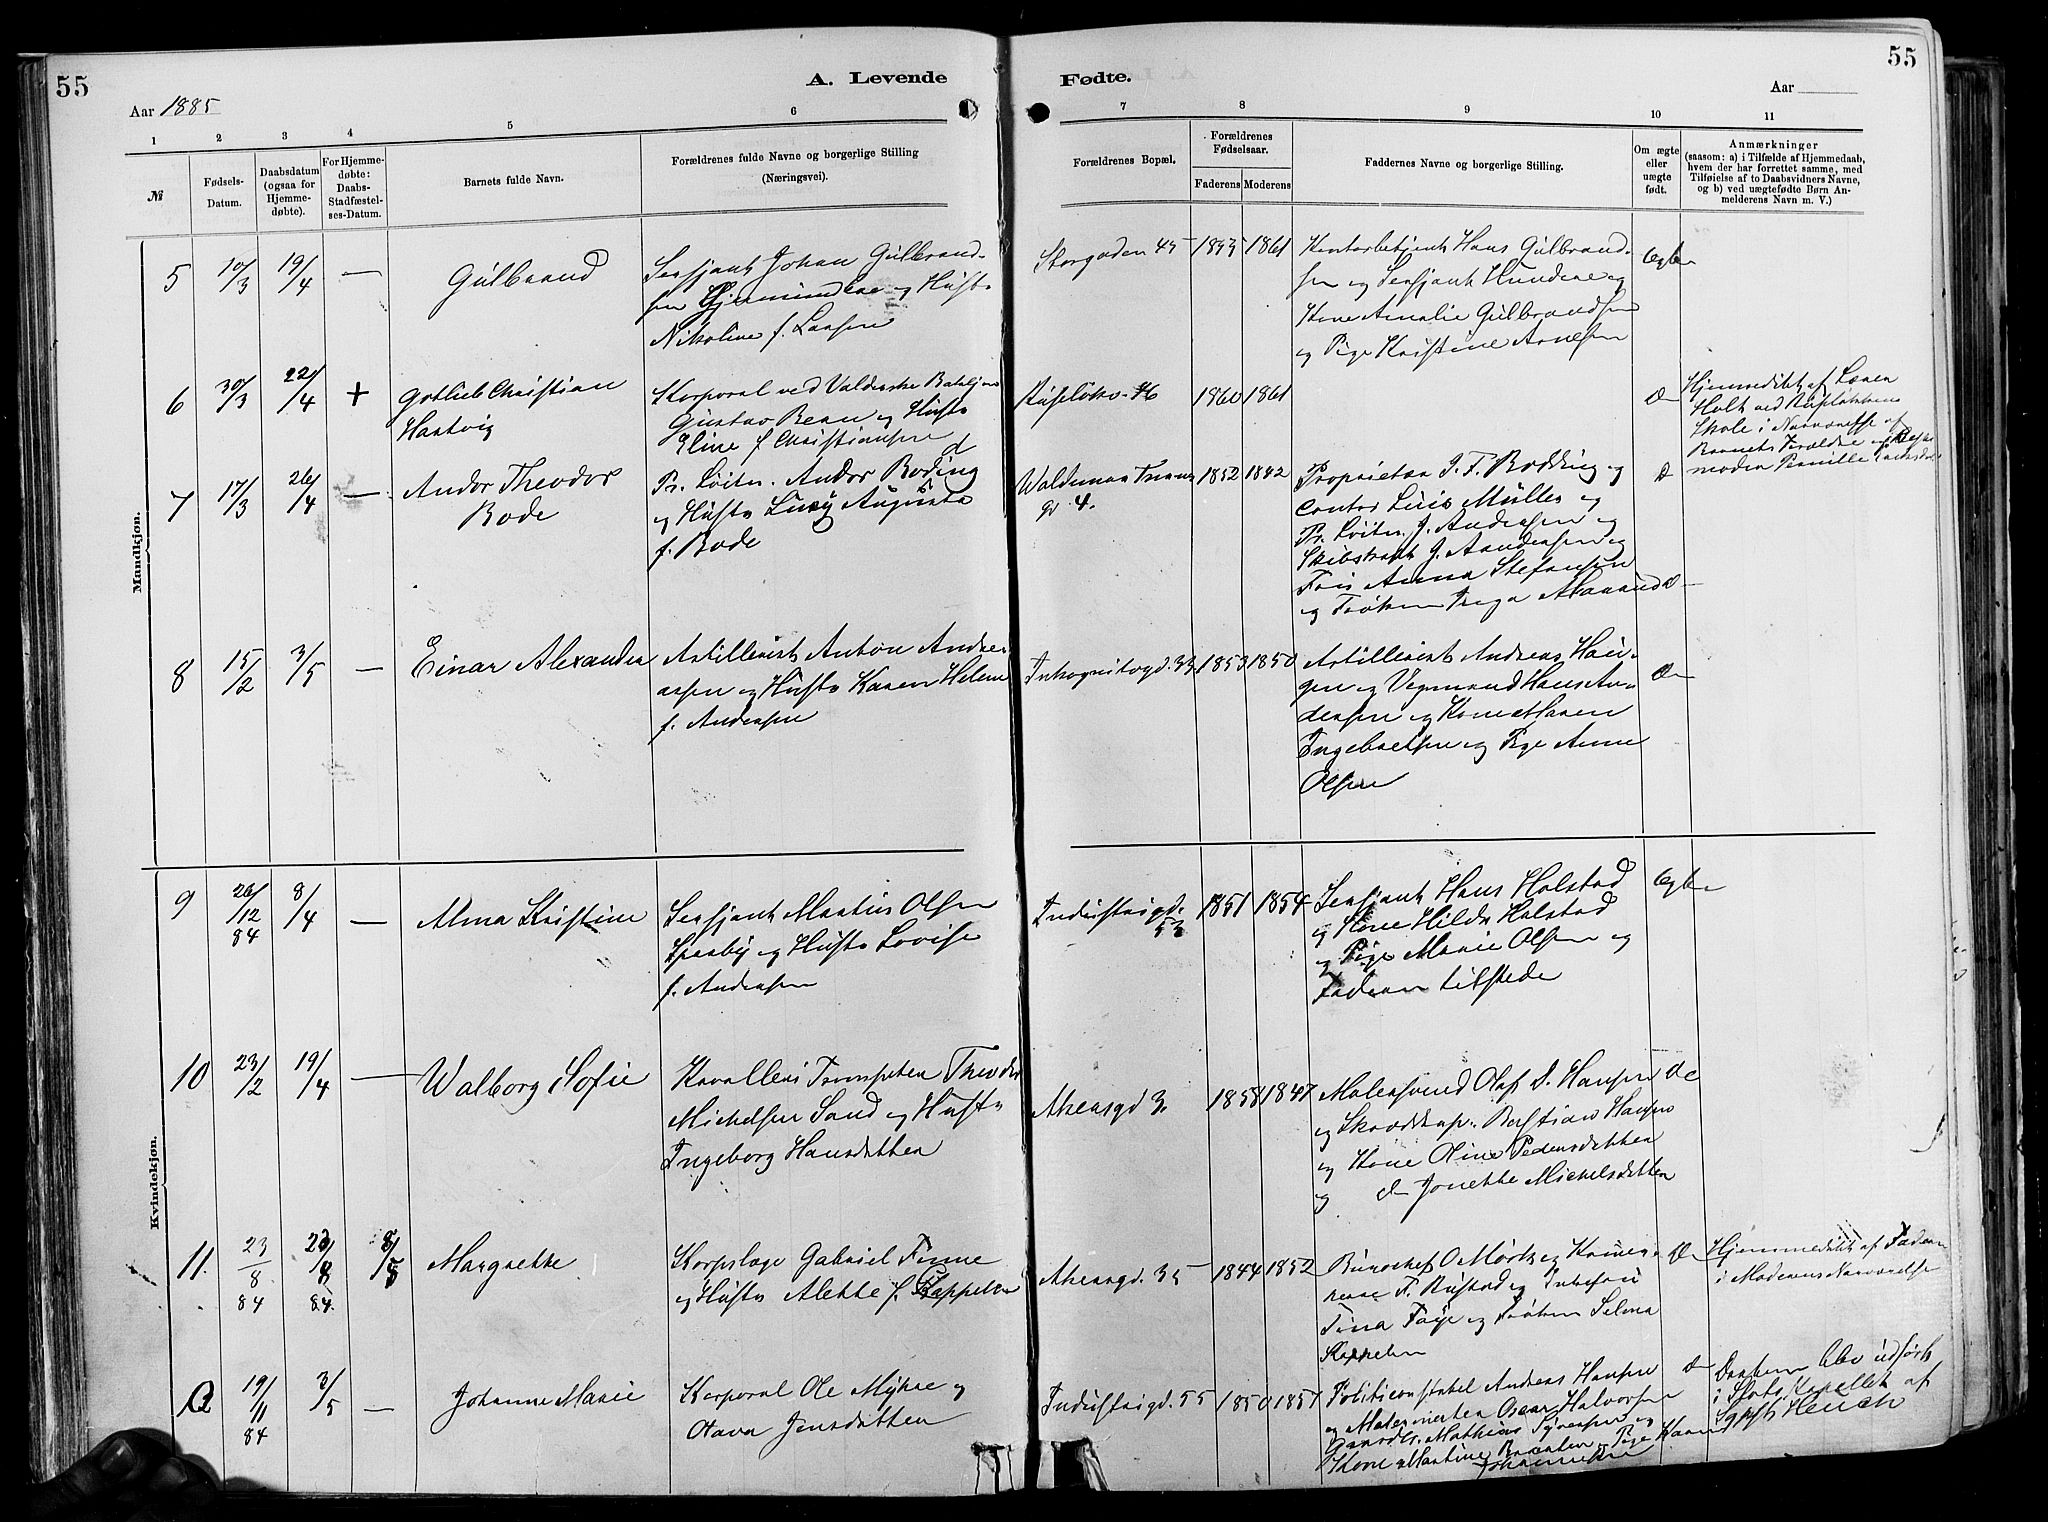 55
A. Levende
Fødte.
55
Aar 1885
Aar
1 2 3 4 5 6 7 8 9 10 11
№
Fødsels-
Datum.
Daabsdatum
(ogsaa for
Hjemme-
døbte).
For Hjemme-
døbte:
Daabs-
Stadfæstel-
ses-Datum.
Barnets fulde Navn.
Forældrenes fulde Navne og borgerlige Stilling
(Næringsvei).
Forældrenes Bopæl.
Forældrenes
Fødselsaar.
Faderens Moderens
Faddernes Navne og borgerlige Stilling.
Om ægte
eller
uægte
født.
Anmærkninger
(saasom: a) i Tilfælde af Hjemmedaab,
hvem der har forrettet samme, med
Tilføielse af to Daabsvidners Navne,
og b) ved uægtefødte Børn An-
melderens Navn m. V.)
Mandkjøn.
5
10/3
19/4
—
Gulbrand
Sersjant Johan Gulbrand-
sen og Hustr
Nikoline f. Larsen
Storgaden 45
1861
Kontorbetjent Hans Gulbrand-
sen og Sersjant Hundere og
Kone Amalie Gulbrandsen
og Pige Kristine Arnesen
Egte
6
30/3
22/4
+
Gotlieb Christian
Hartvig
Korporal ved Valderske Bataljon
Gustav og Hustr
Eline f Christiansen
Ruseløkv. 46
1860
1861
Do
Hjemmedøbt af Lærer
Holt ved Ruseløkkens
Skole i Nærværelse af
Barnets Forældre
moder Pernille
7
17/3
26/4
—
Andor Theodor
Bode
Pr. Løitn. Andor Boding
og Hustr Lucy Augusta
f. Bode
Waldemar Thranes
gd. 4.
1852
1842
Proprietær J. F. Bodding og
Contor Luis Müller og
Pr. Løitn. J. Andersen og
Skibskapt J. Andersen og
Fru Anna Stefansen
og Frøken Inga
D
8
15/2
3/5
—
Einar Alexander
Artillerist Anton Andre-
assen og Hustr Karen Helene
f. Andersen
Inkognitogd. 33
1853
1850
Artillerist Andreas Hau-
gen og Vognmand Hans An-
dersen og Kone Maren
Ingebretsen og Pige Anne
Olsen
Do
Kvindekjøn.
9
26/12
84
8/4
—
Alma Kristine
Sersjant Martius Olsen
Spraby og Hustr Lovise
f. Andersen
Industrigd.
53
1851
1854
Sersjant Hans Holstad
og Kone Hilda Holstad
og Pige Marie Olsen og
Faderen tilstede
Egte
10
23/2
19/4
—
Walborg Sofie
Kavalleri Trompeter Theodor
Michelsen Sand og Hustr
Ingeborg Hansdatter
Akersgd 3.
1858
1847
Malersvend Olaf S. Hansen
og Skrædder Bastian Hansen
og Kone Oline Pedersdatter
og do Jonette Michelsdatter
do
11.
23/8
84
23/8
84.
8/5
Margrethe
Korpslæge Gabriel Finne
og Hustr Alette f. Cappelen
Akersgd. 35
1844
1852
Bürochef O Mørk og Kamer-
herre F. Rustad og
Tina Faye og Frøken Selma
Kappelen
Do
Hjemmedøbt af Faderen
i Moderens Nærværelse
12
19/11
84
3/5
—
Johanne Marie
Korporal Ole Myhre og
Olava Jensdatter
Industrigd. 55
1850
1851
Politiconstabel Andreas Hansen
og Maskinmester Oscar Halvorsen
Gaardbr. Mathias og
Kone Martine og Pige Karen
Johannesen
Do
Daaben blev udført
i Slotskapellet af
Sgpst Heuch